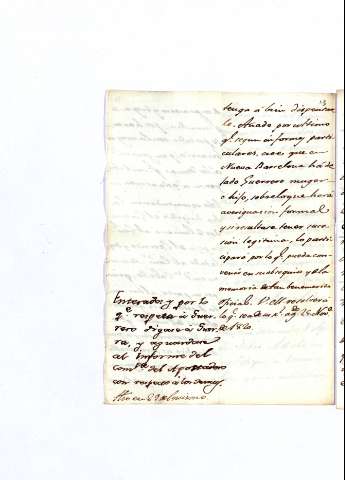 tenga à bien dispensar
le. Añado por ultimo
qe. segun informes parti
culares, cree que en
Nueva Barcelona ha de
jado Guerrero muger
è hijo, sobre lo que hará
averiguacion formal
y si resultare tener suce
sion legitima, lo parti
cipará por lo qe. pueda con
venir en su obsequio y de la
memoria de tan benemerito
oficial. V.E. resolverá
de 1820.
Enterado, y por lo
qe. respeta à Guer
rero digase à Guer
ra, y aguardese
el informe del
comte. del Apostadero
con respecto à los demas.